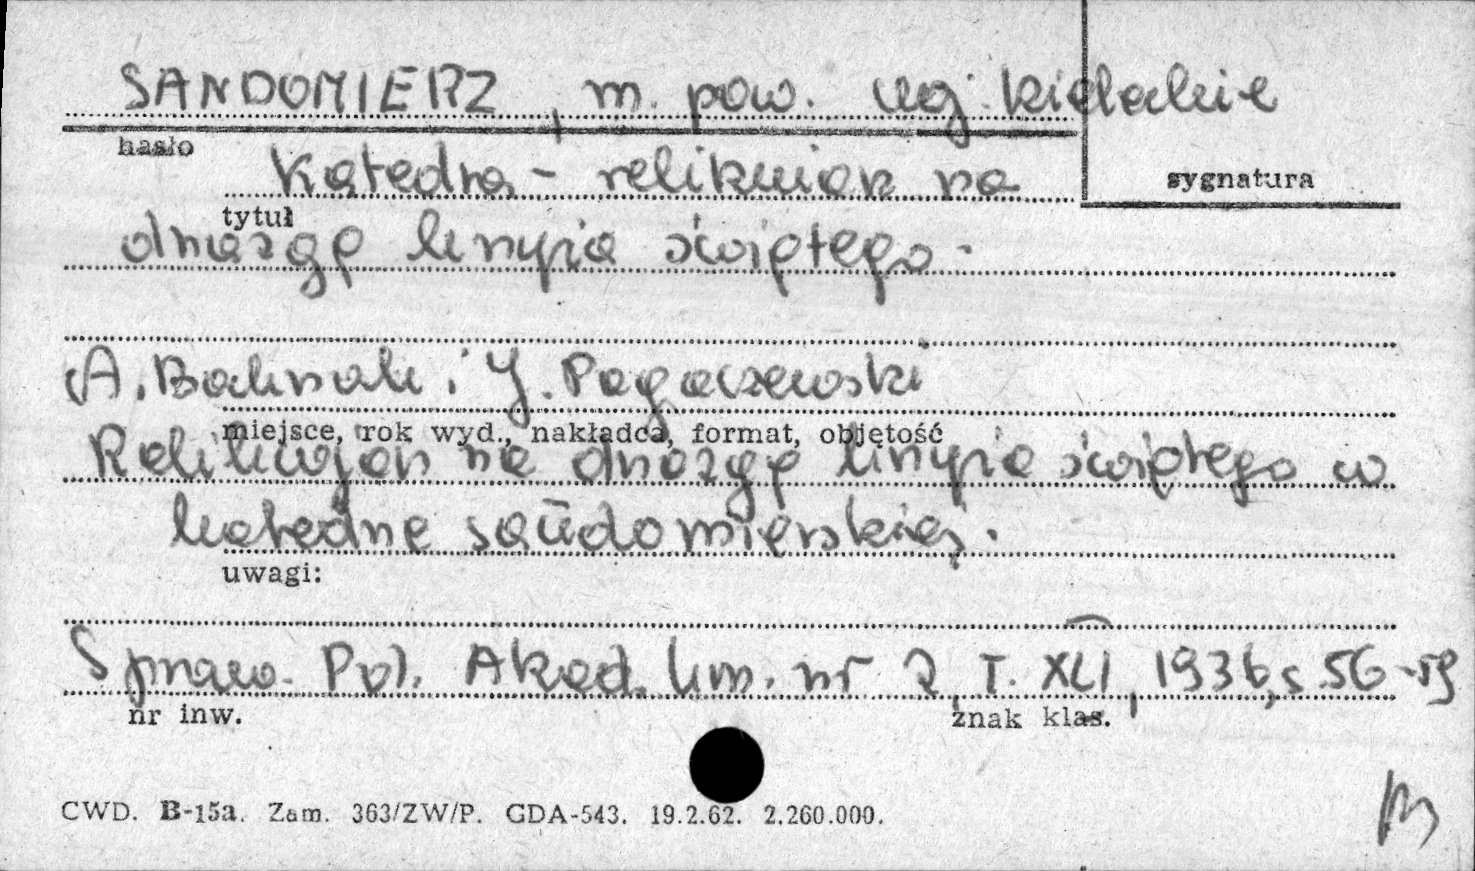 SANDOMIERZ, m. pow. woj. kieleckie
hasło
Katedra - relikwiarz na
sygnatura
tytuł
drzazgę krzyża świętego.
A. Bochnak i J. Pagaczewski
miejsce, rok wyd., nakładca, format, objętość
Relikwiarz na drzazgę krzyża świętego w
katedrze sandomierskiej.
uwagi:
Spraw. Pol. Akad. Um. nr 2, T. XLI, 1936, s 56-59
nr inw.
znak klas.
CWD. B-15a. Zam. 363/ZW/P. GDA-543. 19.2.62. 2.260.000.